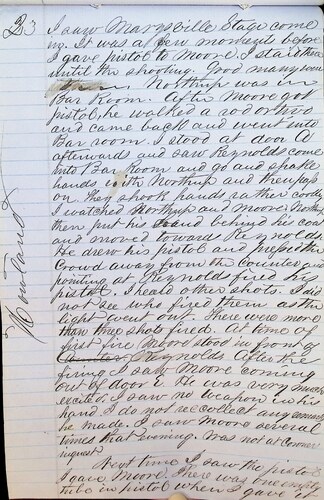 23 I saw Marysville Stage come
in. It was a few moments before
I gave pistol to Moore. I staid there
until the shooting. Good many were
there. Northup was in
Bar Room. After Moore got
pistol, he walked a rod or two
and came back and went into
Bar room. I stood at door A
afterward and saw Reynolds come
into Bar Room and go and shake
hands with Northup and then pass
on. They shook hands rather coolly
I watched Northup and Moore. North
then put his hand behind his coat
and moved toward Reynolds
He drew his pistol and pressed the
crowd away from the Counter and
pointing at Reynolds fired his
pistol. I heard other shots. I did
not see who fired them as the
light went out. There were more
than three shots fired. At time of
first fire Moore stood in front of
Counter, Reynolds After the
firing I saw Moore coming
out of door E. He was very much
excited. I saw no weapon in his
hand. I do not recollect any remark
he made. I saw Moore several
times that evening. Was not at Coroner
inquest
Next time I saw the pistol
I gave Moore. There was one empty
tube in pistol when I gave it
Howland